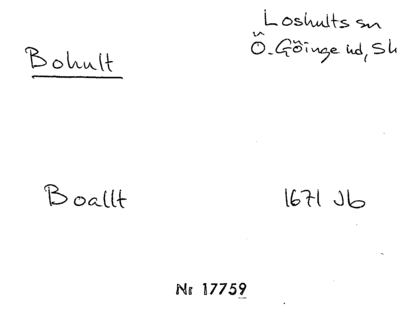 Loshults sn
Ö. Göinge hd, Sk
Bohult
Boallt 1671 Jb
Nr 17759